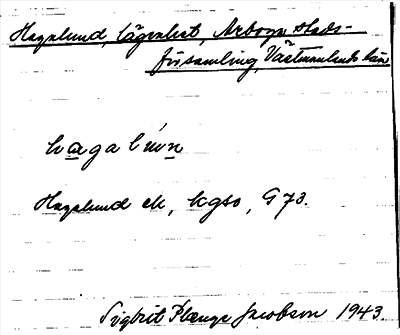 Hagalund, lägenhet, Arboga stads-
församling, Västmanlands län
Hagalund
Hagalund ek, G 73.
Sigbrit Plænge Jacobson 1943.